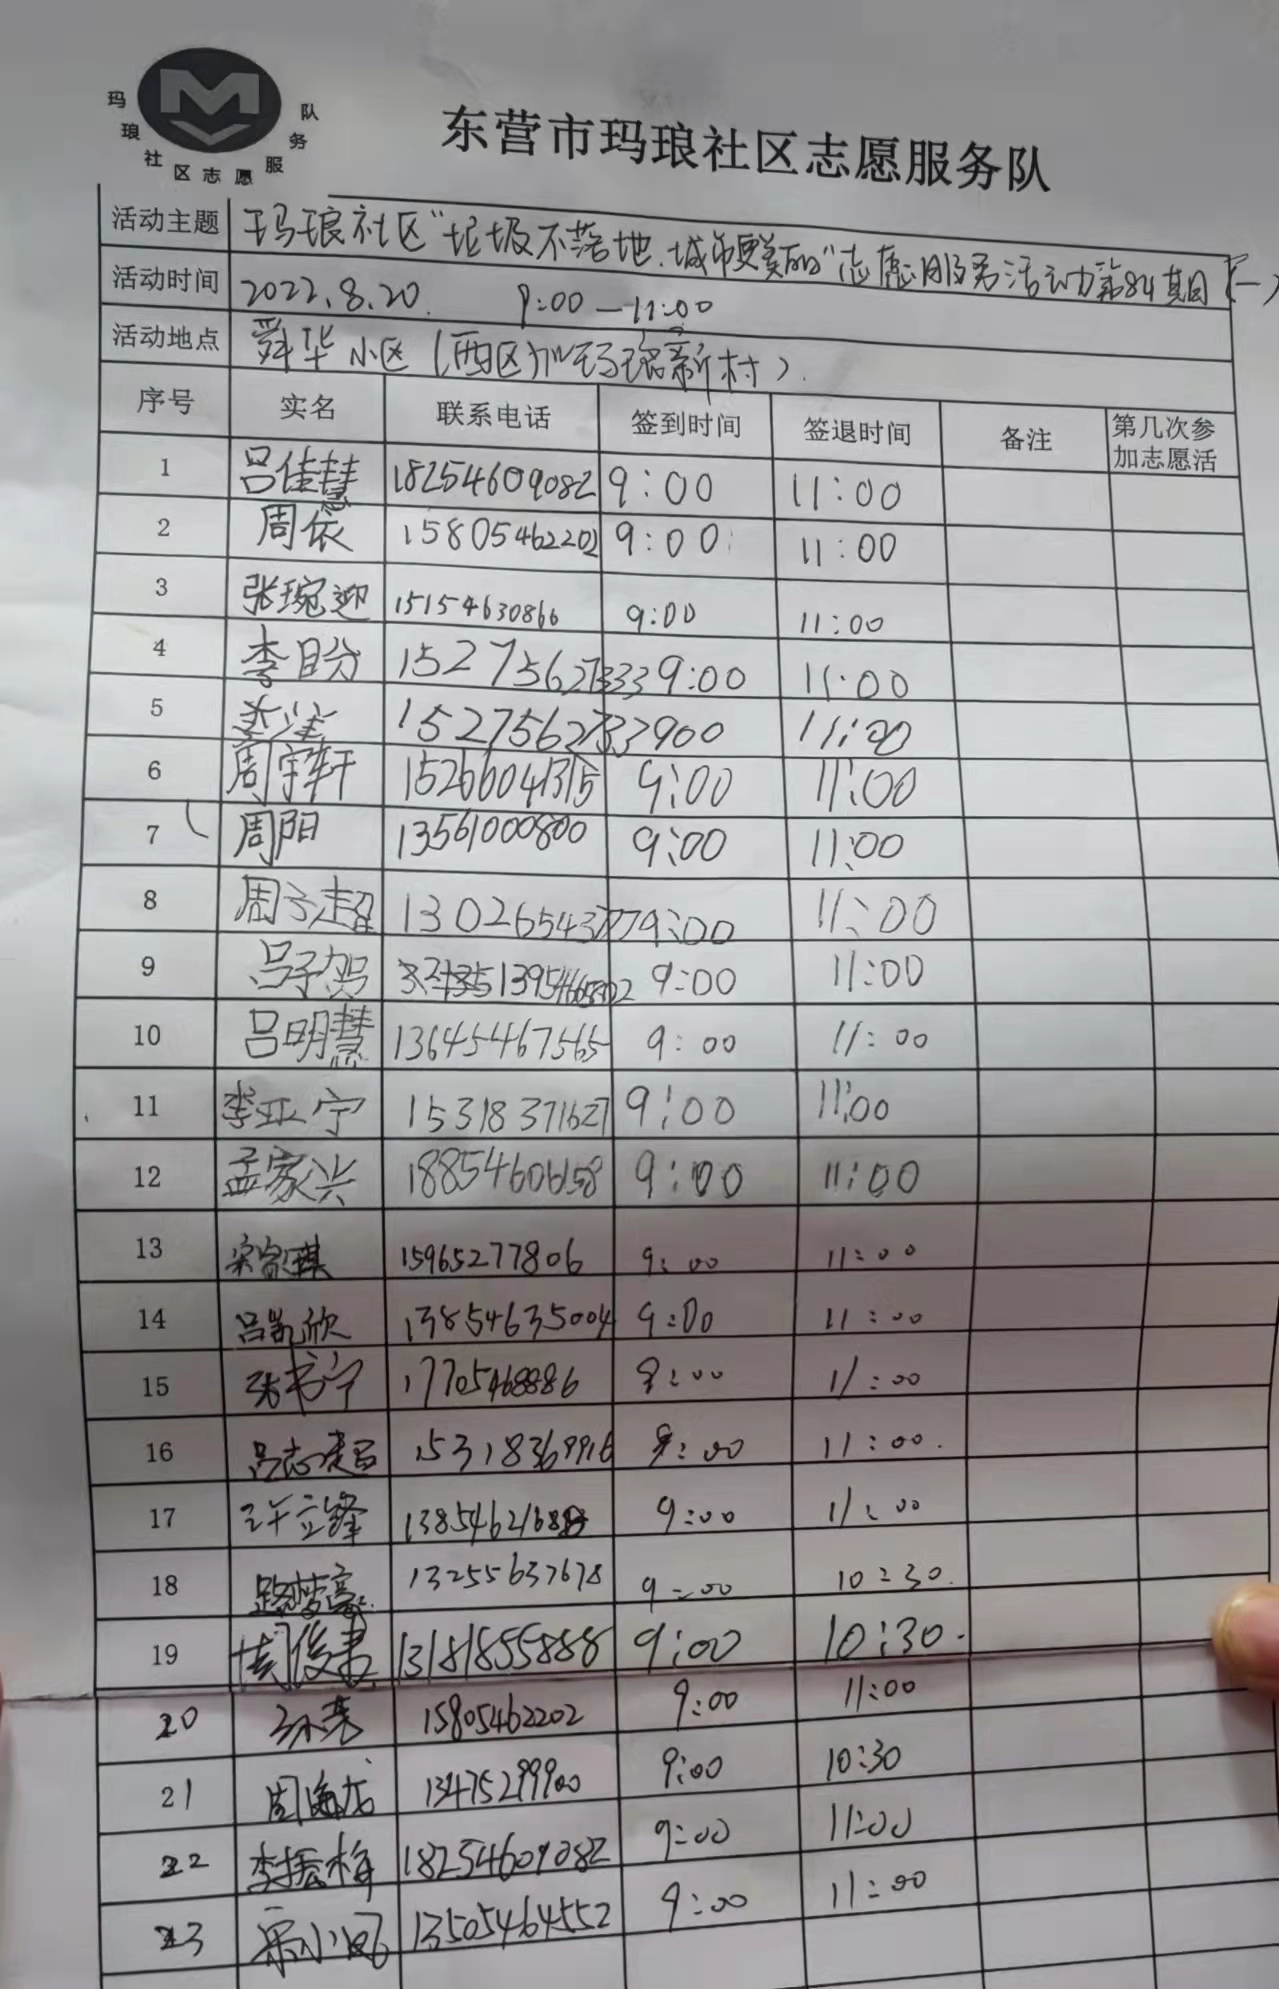 玛琅社区志愿服务队
东营市玛琅社区志愿服务队
活动主题 玛琅社区“垃圾不落地.城市更美丽”志愿服务活动第84期(一)
活动时间 2022.8.20. 9:00—11:00
活动地点 舜华小区(西区)(玛琅新村).
序号 实名 联系电话 签到时间 签退时间 备注 第几次参加志愿活
1 吕佳慧 18254609082 9:00 11:00
2 周依 15805462202 9:00 11:00
3 张琬迎 15154630866 9:00 11:00
4 李目分 15275627333 9:00 11:00
5 李 1527562733 900 11:00
6 周宇轩 15266041315 9:00 11:00
7 周阳 13561000800 9:00 11:00
8 周子超 13026543777 9:00 11:00
9 吕子贺 9:00 11:00
10 吕明慧 13645467565 9:00 11:00
11 李亚宁 15318371627 9:00 11:00
12 孟家兴 18854606158 9:00 11:00
13 宋家琪 15965277806 9:00 11:00
14 吕凯欣 13854635004 9:00 11:00
15 张书宁 17705468886 9:00 11:00
16 吕志超 15318369916 9:00 11:00.
17 许立锋 9:00 11:00
18 路梦豪 13255637678 9:00 10:30.
19 周俊 13181855888 9:00 10:30.
20 孙亮 15805462202 9:00 11:00
21 周海龙 13475299900 9:00 10:30
22 李振梅 18254609082 9:00 11:00
23 宋小凤 13505464552 9:00 11:00